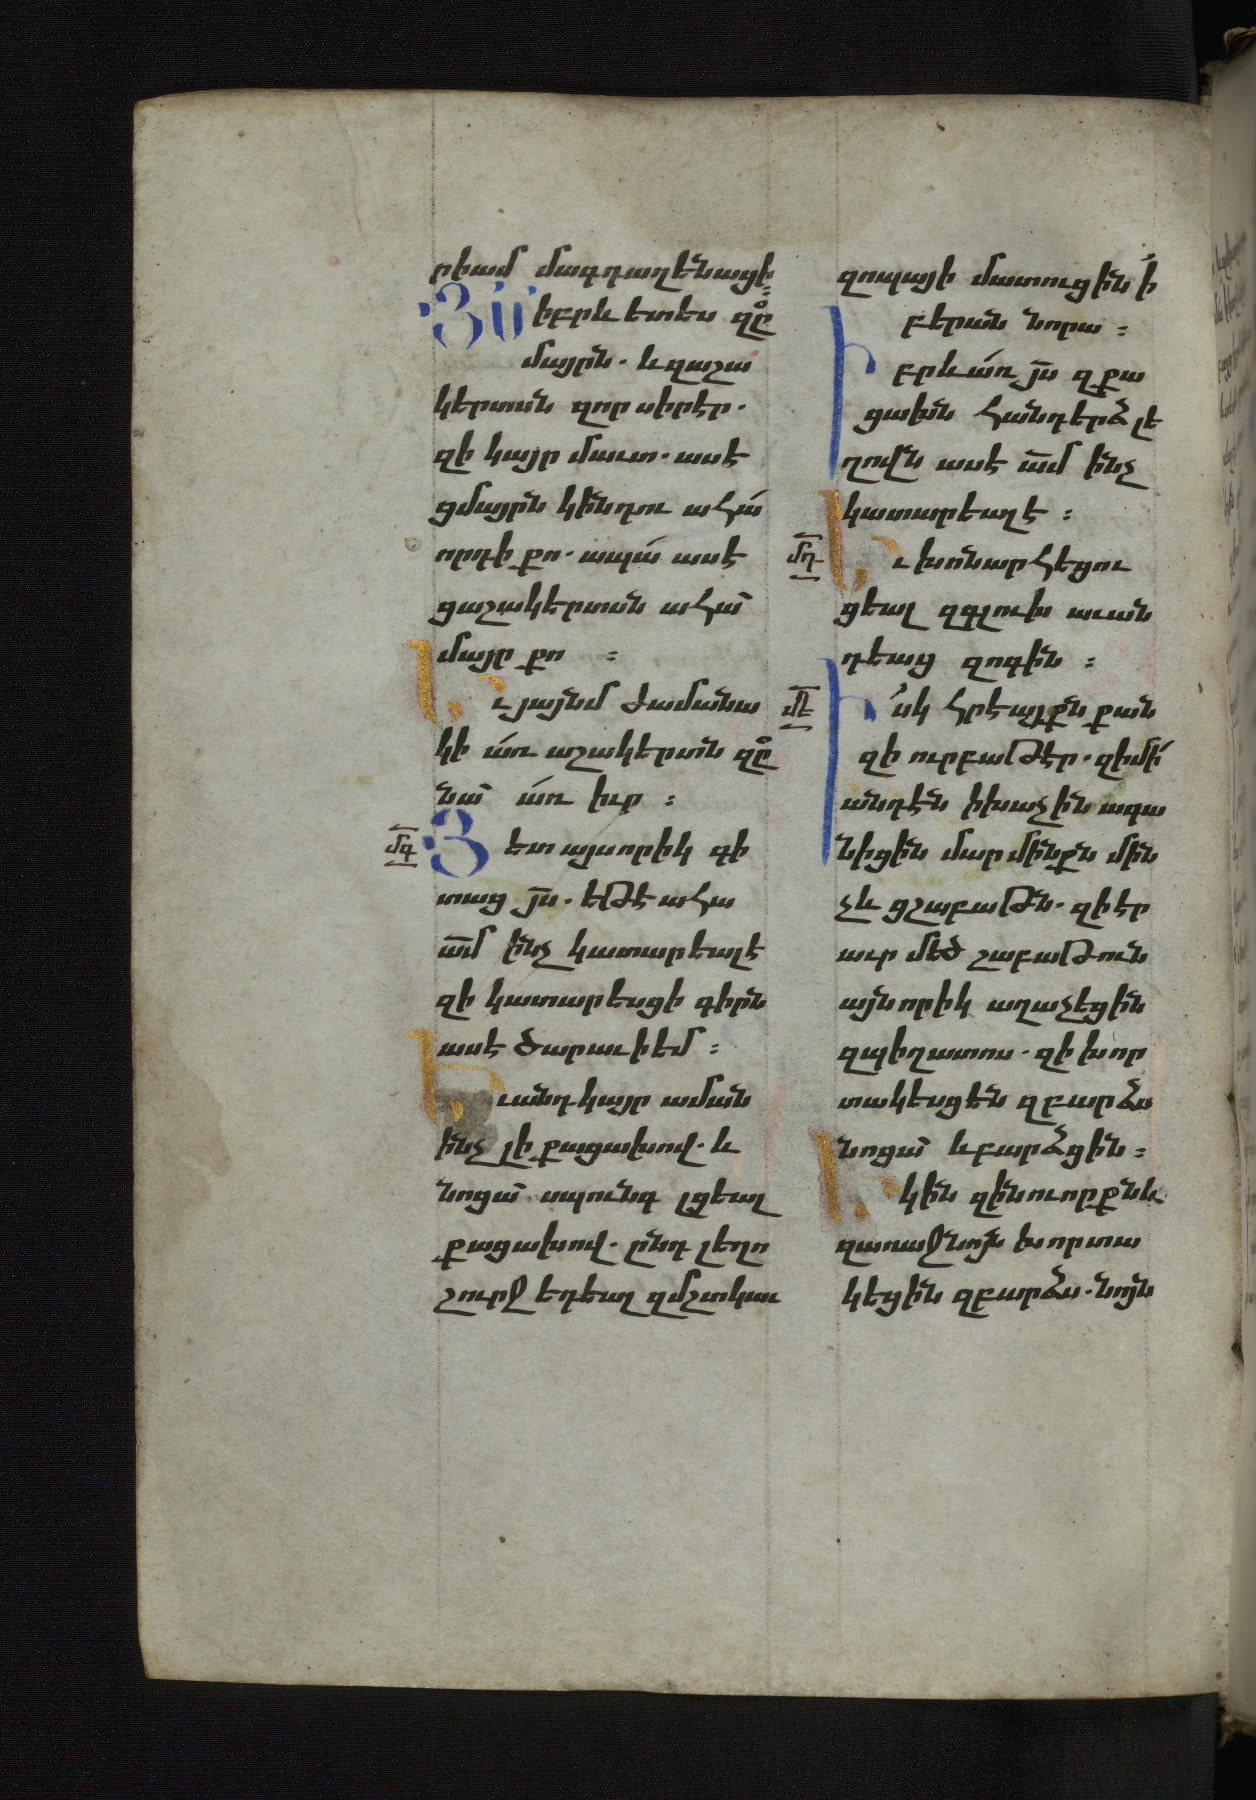 րիամ մագդաղէնացի
ՅՍ իբրև ետես զը
մայրն. և զաշա
կերտսն զոր սիրէր.
զի կայր մաւտ. ասէ
ցմայրն կին դու ահա՛
որդի քո. ապա՛ ասէ
ցաշակերտսն ահա՛
մայր քո ։
Եւ յայնմ ժամանա
կի ա՛ռ աշակերտն զը
նա՛ ա՛ռ իւր ։
մգ
Յետ այսորիկ գի
տաց յս. եթէ ահա
ամ ինչ կատարեալէ
զի կատարեսցի գիրն
ասէ ծարաւիեմ ։
Եւ անդ կայր աման
ինչ լի քացախով. և
նոցա՛ սպունգ լցեալ
քացախով. ընդ լեղո
շուրջ եդեալ զմշտկաւ
զոպայի մատուցին ի
բերան նորա ։
Իբրև ա՛ռ յս զքա
ցախն հանդերձ լե
ղովն ասէ ամ ինչ
կատարեալ է ։
մդ
Եւ խոնարհեցու
ցեալ զգլուխ աւան
դեաց զոգին ։
մե
Իսկ հրէայքն քան
զի ուրբաթէր. զի մի՛
անդէն ի խաչին ագա
նիցին մարմինքն մին
չև ցշաբաթն. զի էր
աւր մեծ շաբաթուն
այնորիկ աղաչեցին
զպիղատոս. զի խոր
տակեսցեն զբարձս
նոցա՛ և բարձցին ։
Եկին զինուորքն և
զառաջնոյն խորտա
կեցին զբարձս. նոյն